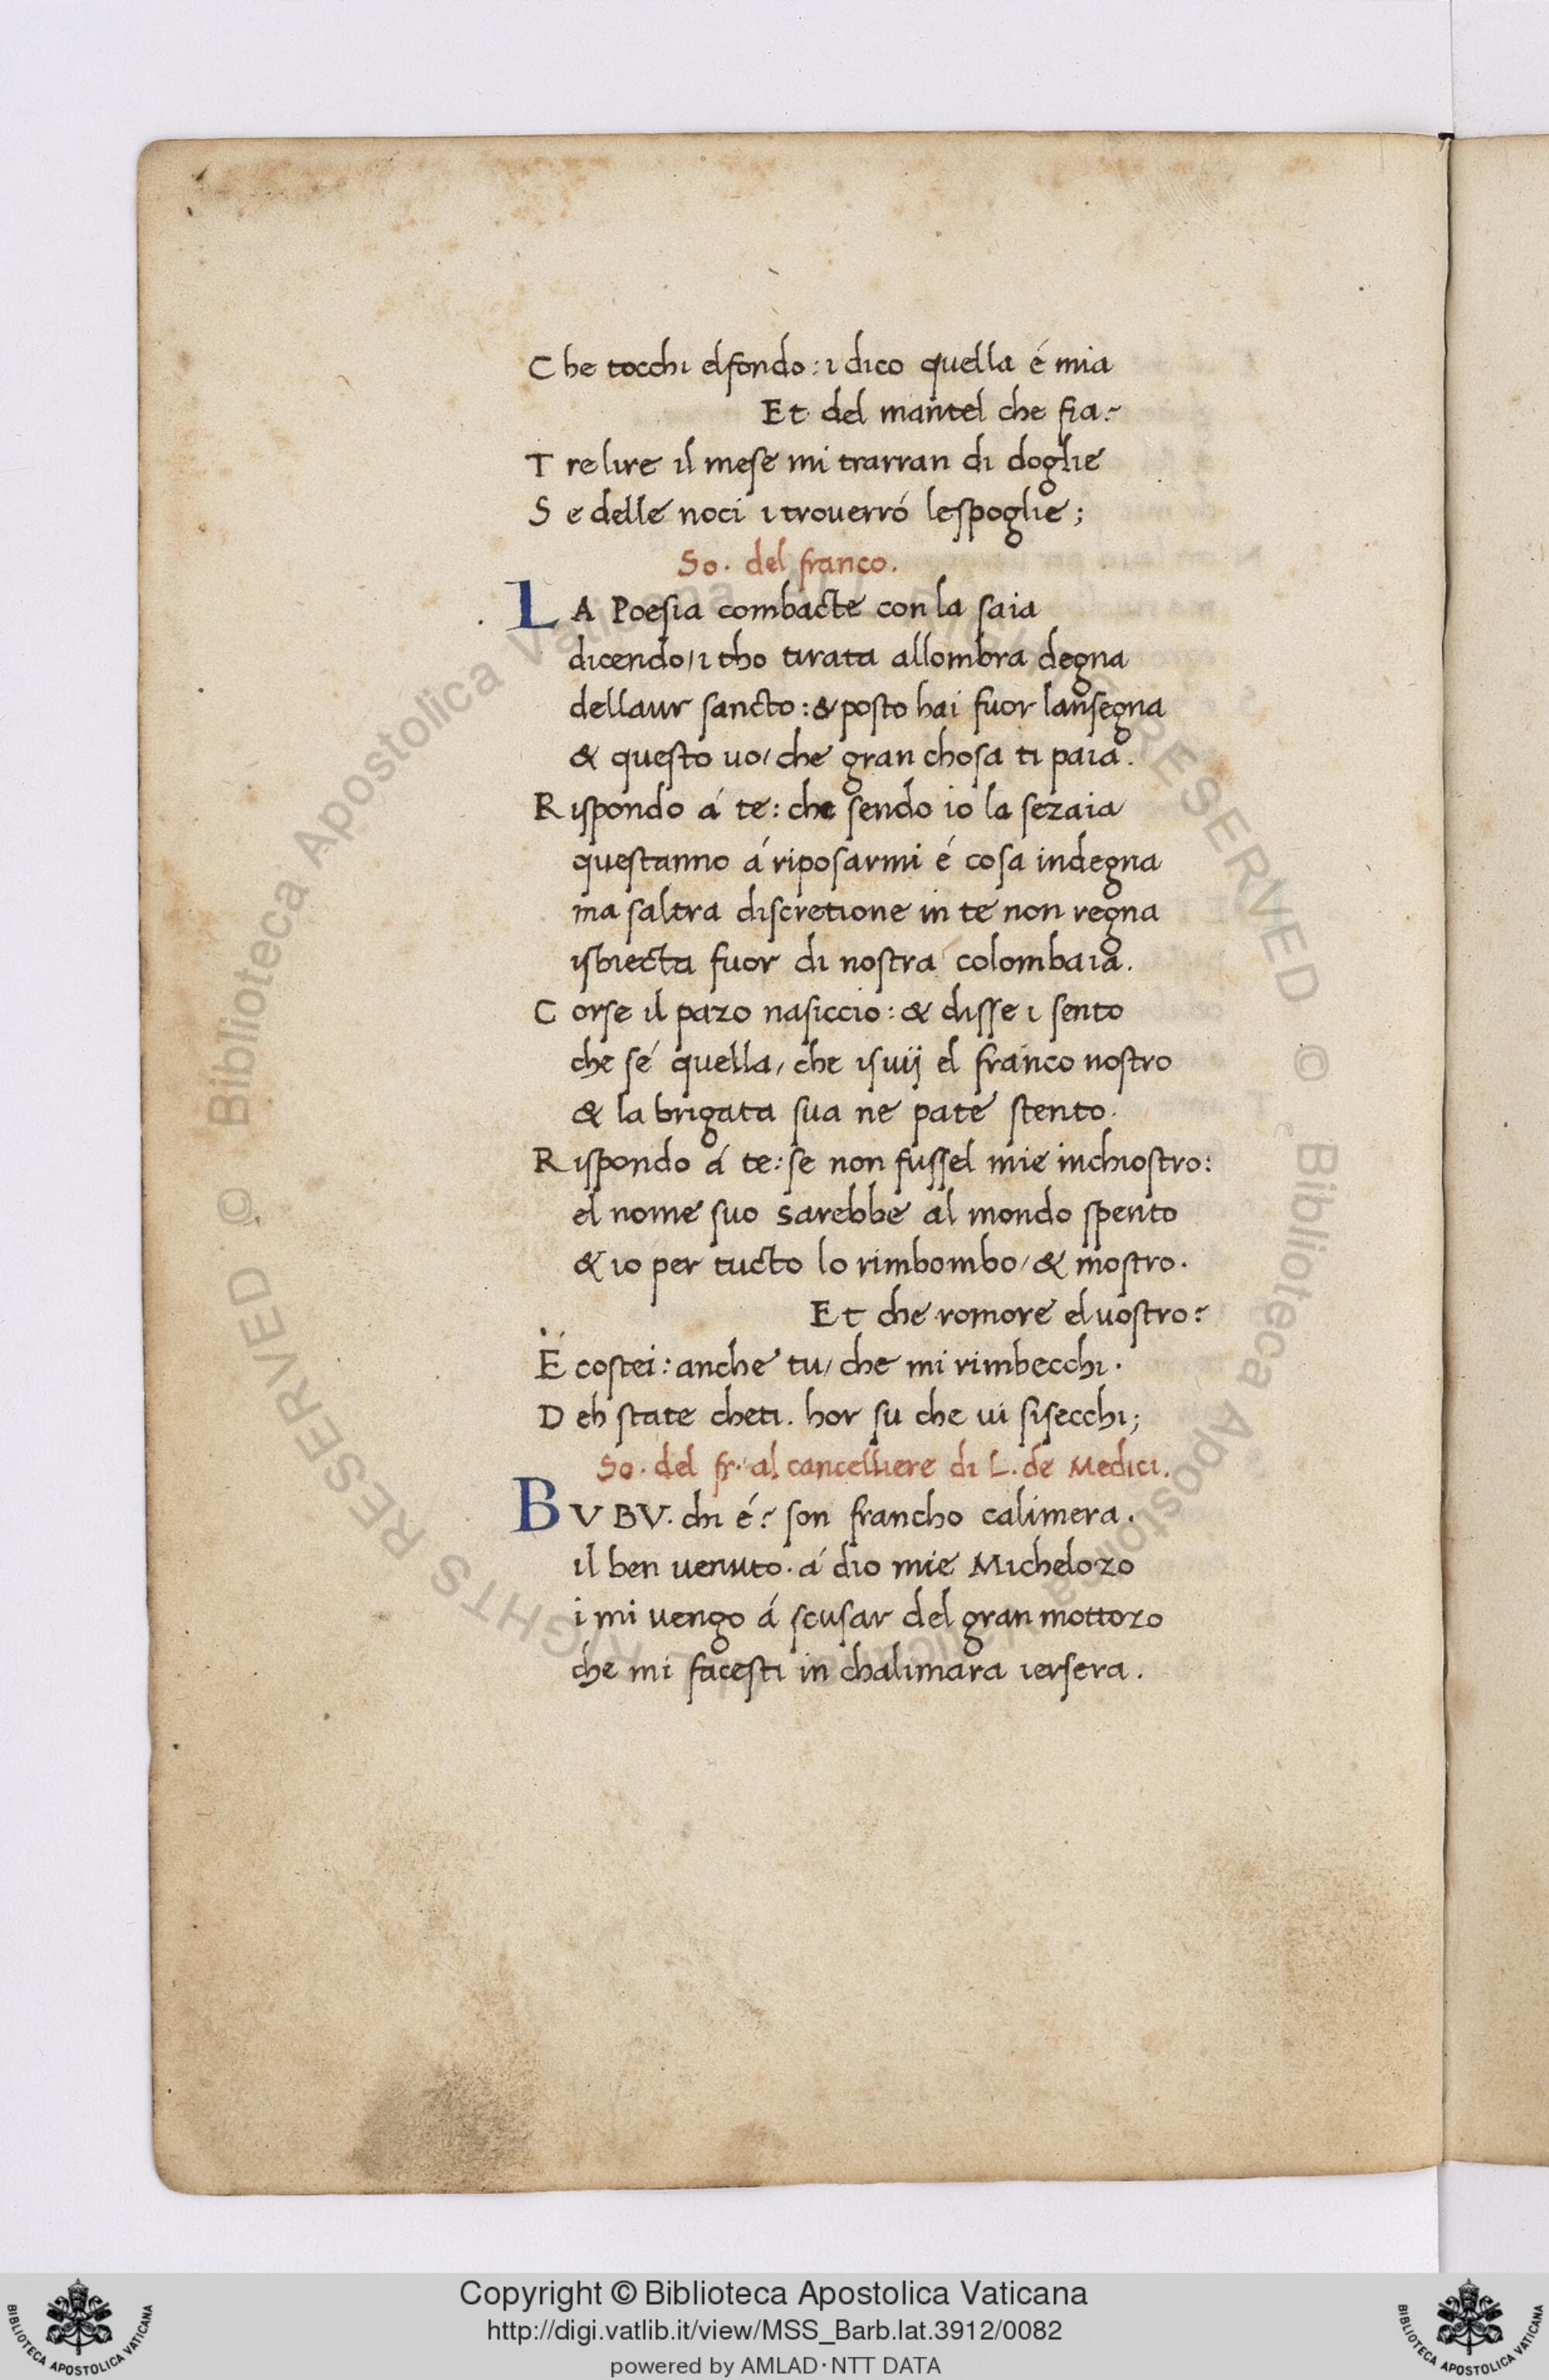 Che tocchi elfondo: i dico quella é mia
Et del mantel che fia?
Tre lire il mese mi trarran di doglie
Se delle noci i trouerró lespoglie;
So. del franco.
LA Poesia combacte con la saia
dicendo/ i tho tirata allombra degna
dellaur sancto: & posto hai fuor lansegna
& questo uo/ che gran chosa ti paia.
Rispondo á te: che sendo io la sezaia
questanno á riposarmi é cosa indegna
ma saltra discretione in te non regna
isbiecta fuor di nostra colombaia.
Corse il pazo nasiccio: & disse i sento
che sé quella, che isuij el franco nostro
& la brigata sua ne pate stento.
Rispondo á te: se non fussel mie inchiostro:
el nome suo sarebbe al mondo spento
& io per tucto lo rimbombo/ & mostro.
Et che romore el uostro?
É costei: anche tu/ che mi rimbecchi.
Deh state cheti. hor su che ui sisecchi;
So. del fr. al cancelliere di L. de Medici.
BV BV. chi é? son francho calimera.
il ben uenuto. á dio mie Michelozo
i mi uengo á scusar del gran mottozo
che mi facesti in chalimara iersera.
© Biblioteca Apostolica Vaticana
RIGHTS RESERVED
Copyright © Biblioteca Apostolica Vaticana
http://digi.vatlib.it/view/MSS_Barb.lat.3912/0082
powered by AMLAD·NTT DATA
BIBLIOTECA APOSTOLICA VATICANA
BIBLIOTECA APOSTOLICA VATICANA